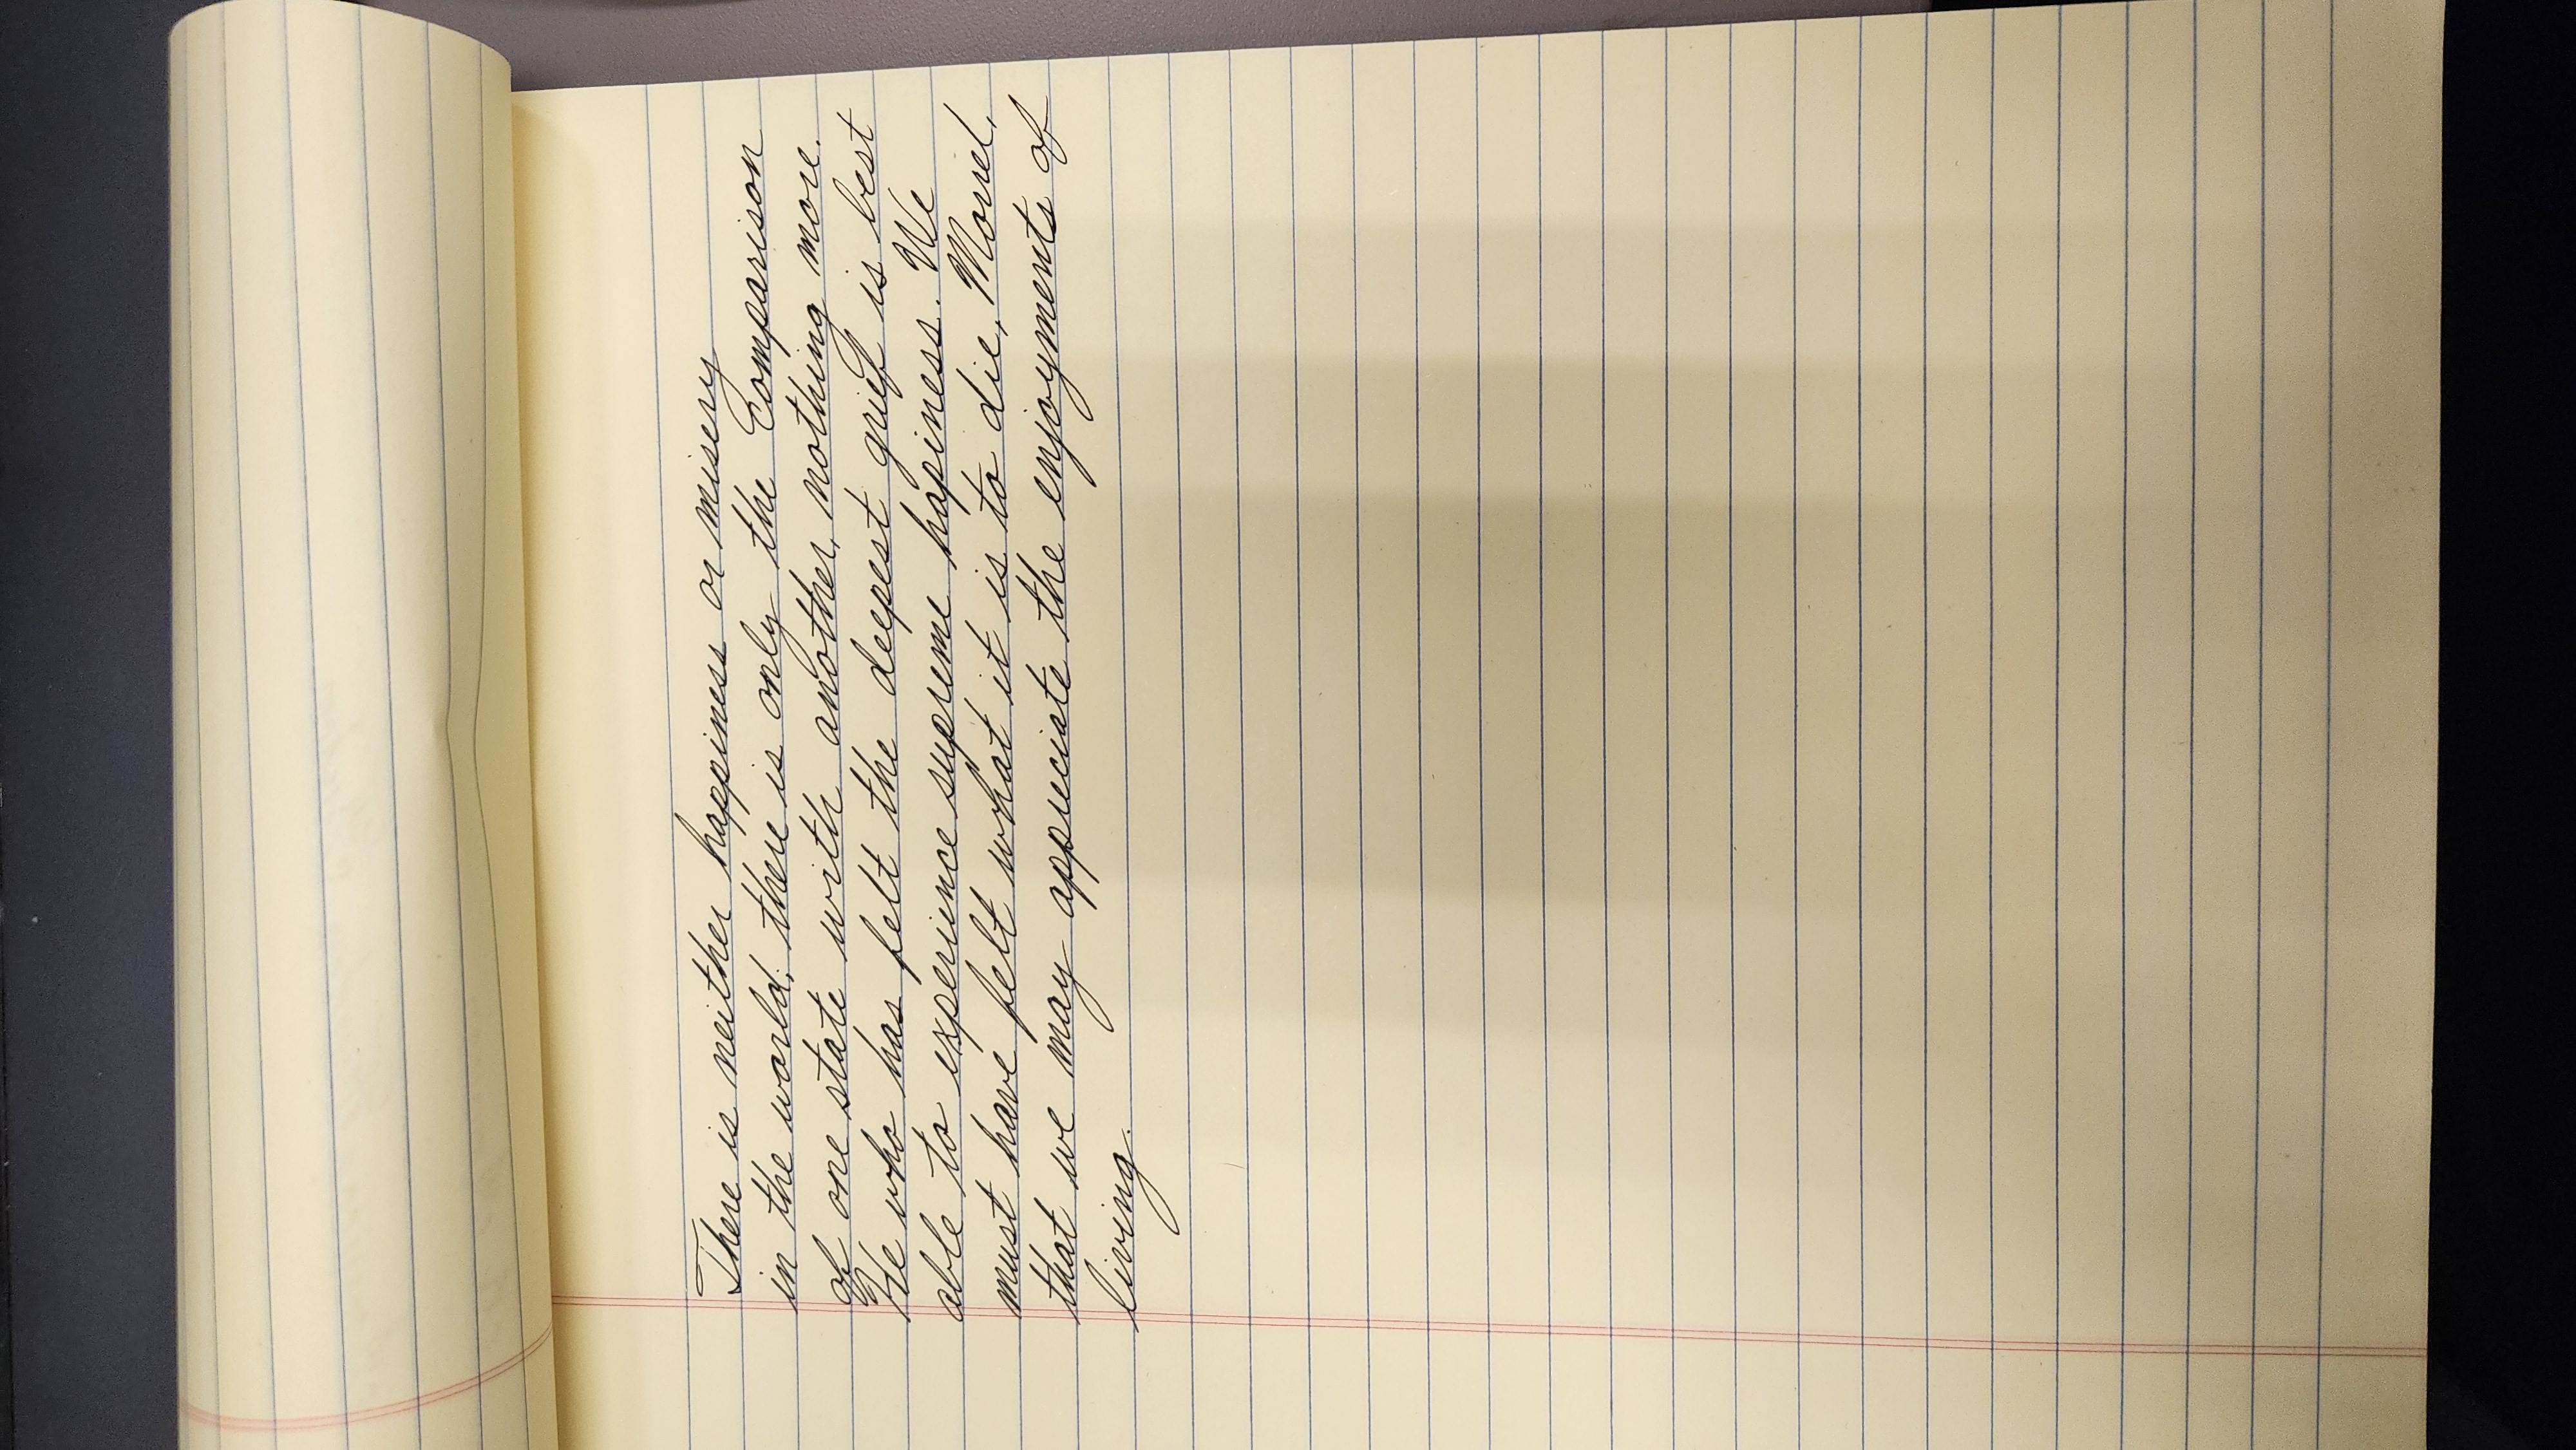 There is neither happiness or misery
in the world; there is only the Comparison
of one state with another, nothing more.
He who has felt the deepest grief is best
able to experience supreme hapiness. We
must have felt what it is to die, Morrel,
that we may appreciate the enjoyments of
living.